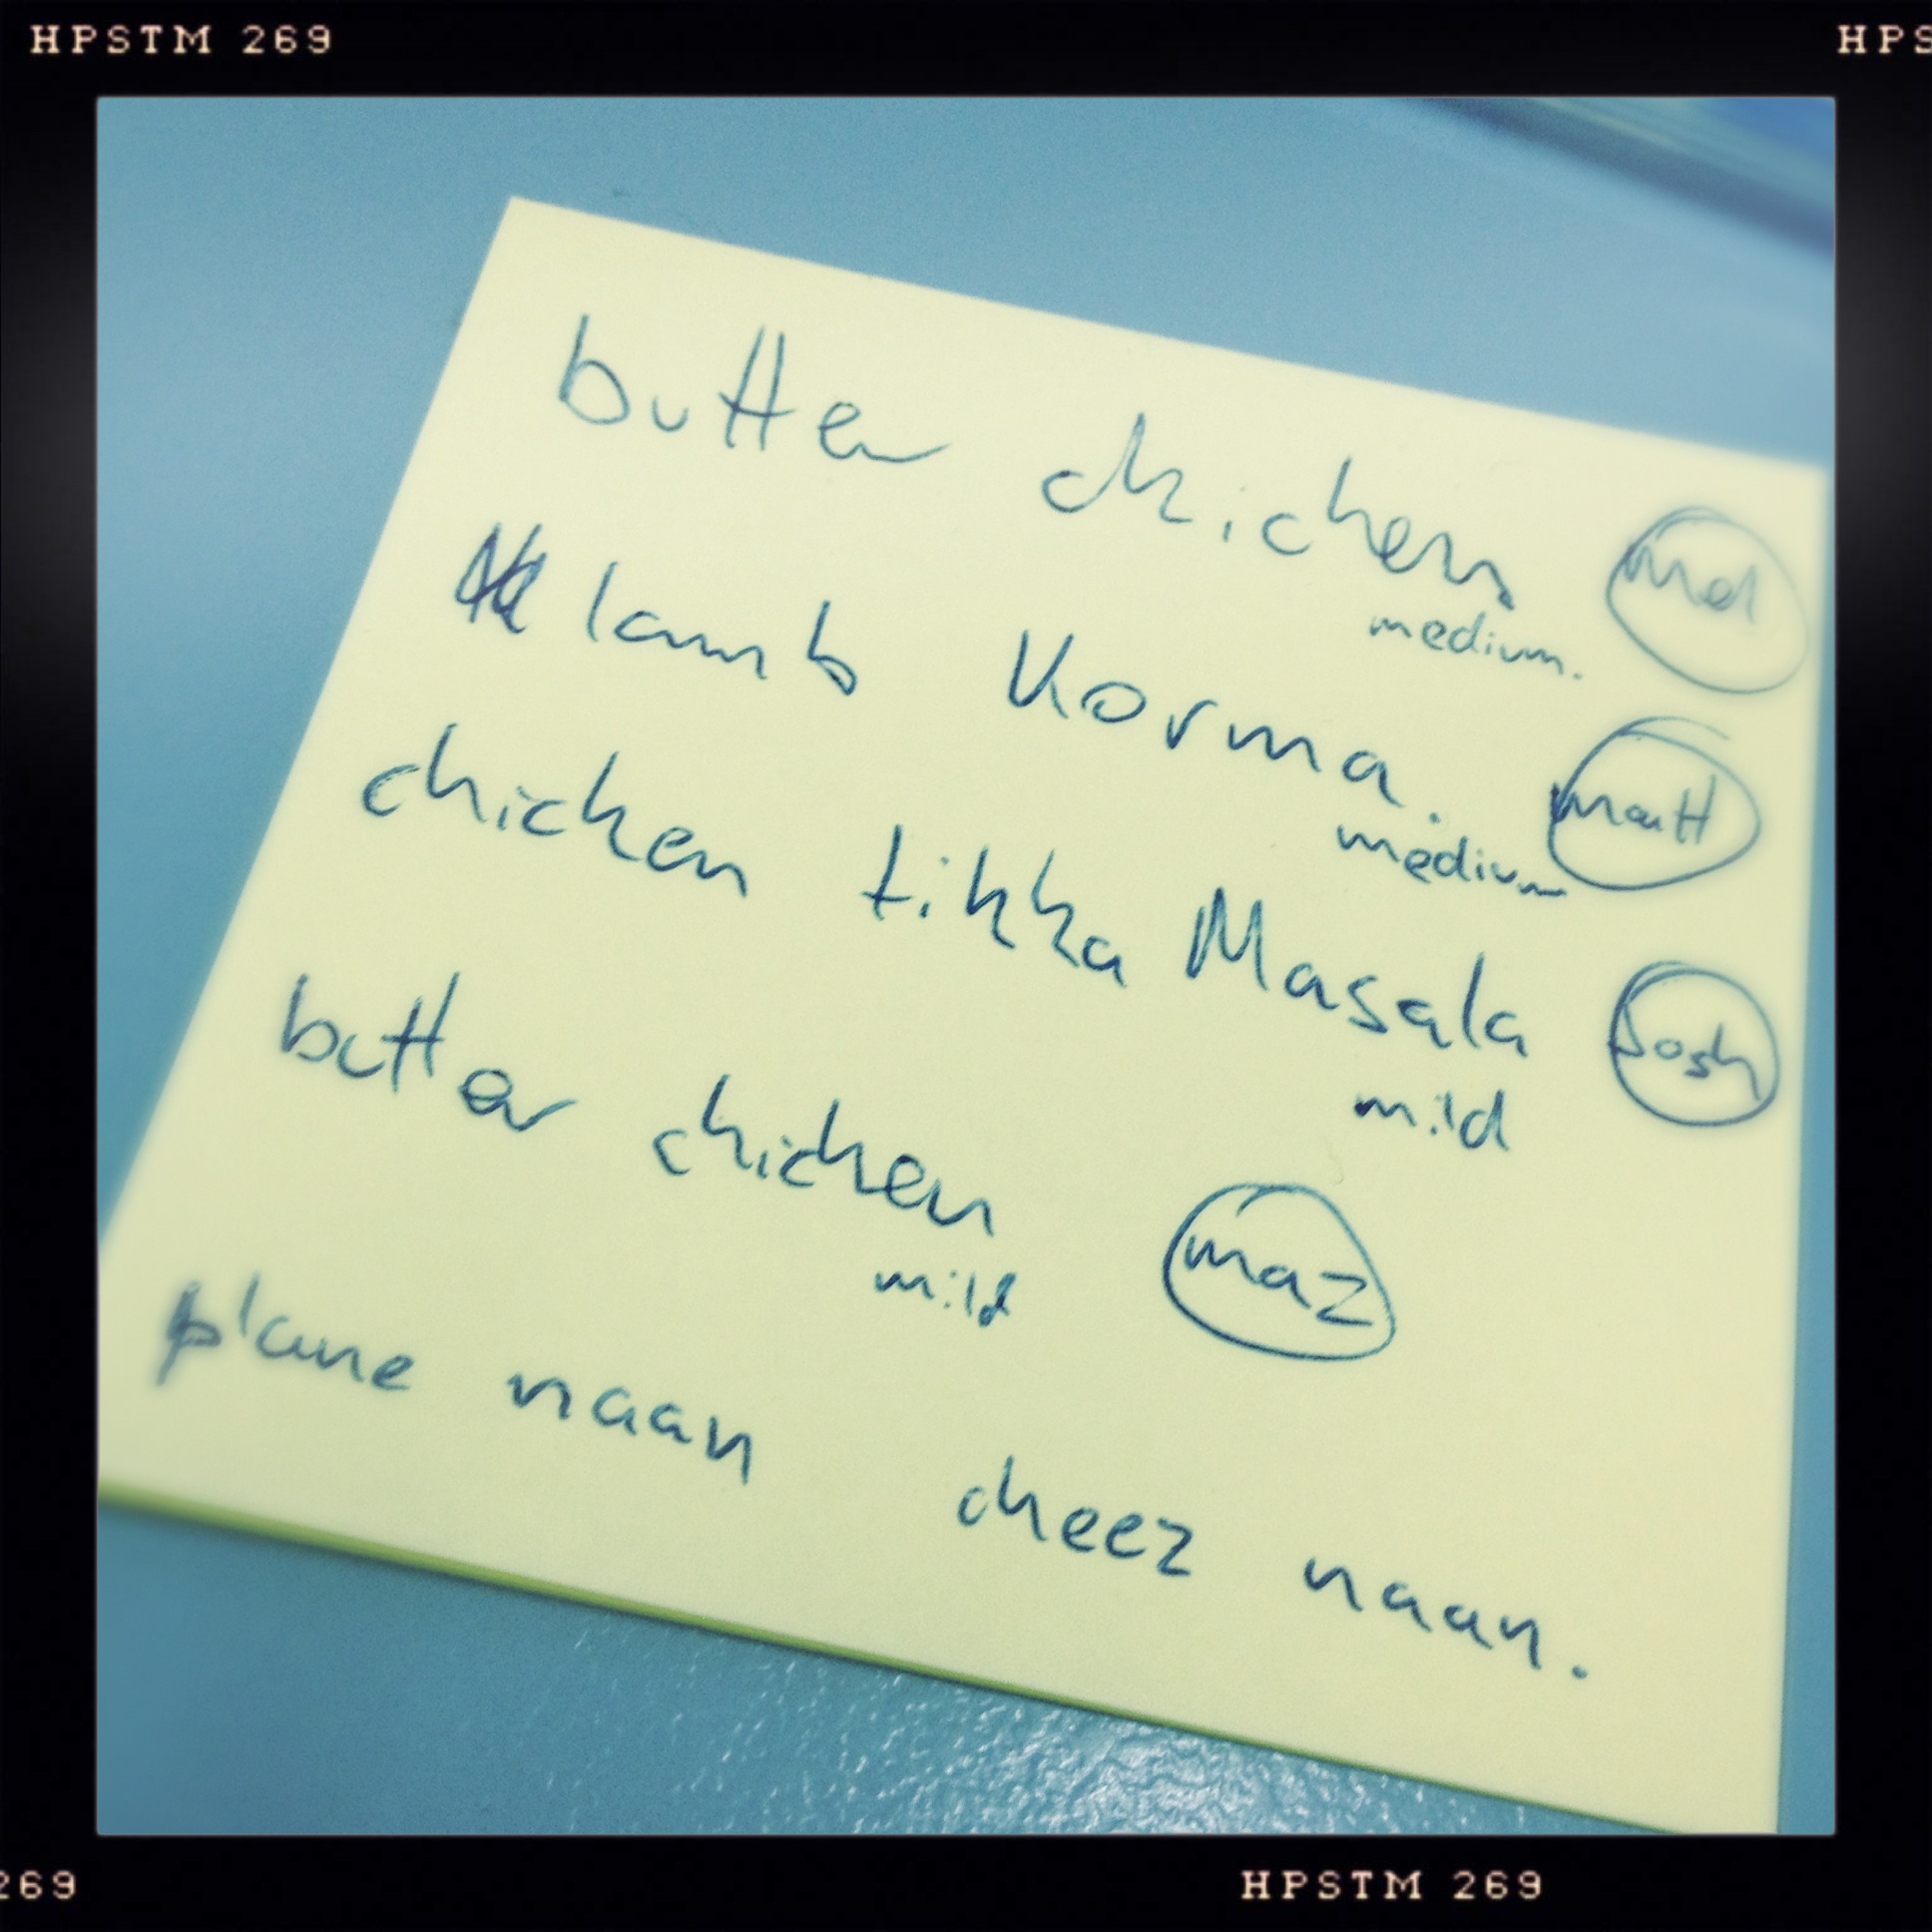 HPSTM 269
HPS
butter chicken
medium.
mel
lamb Korma.
medium
matt
chicken tikka Masala
mild
Josh
butter chicken
mild
maz
plane naan cheez naan.
269
HPSTM 269